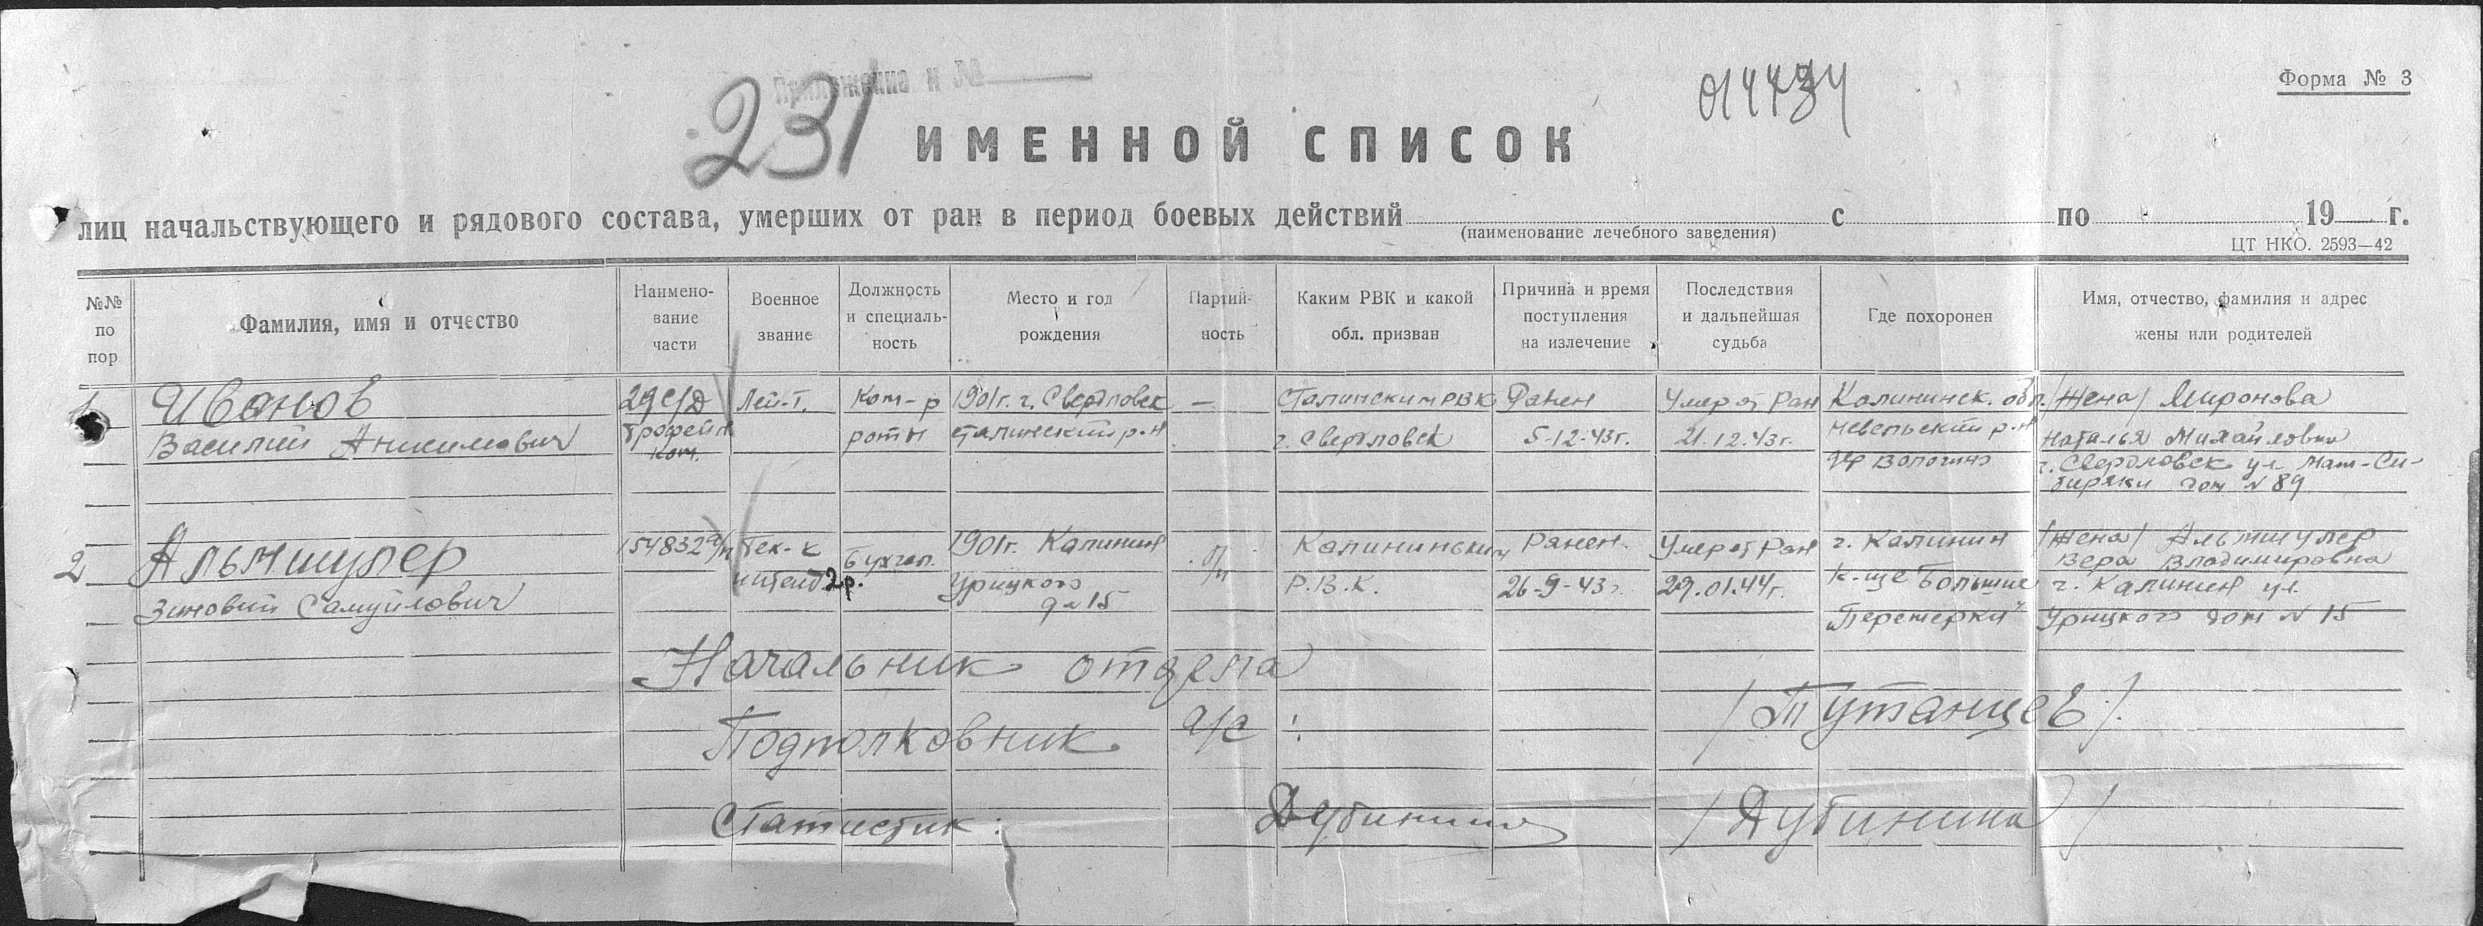 Приложение к №
231
014434
Форма № 3
ИМЕННОЙ СПИСОК
лиц начальствующего и рядового состава, умерших от ран в период боевых действий с по 19 г.
(наименование лечебного заведения)
ЦТ НКО. 2593—42
№№ по пор
Фамилия, имя и отчество
Наимено-
вание
части
Военное
звание
Должность
и специаль-
ность
Место и год
рождения
Партий-
ность
Каким РВК и какой
обл. призван
Причина и время
поступления
на излечение
Последствия
и дальнейшая
судьба
Где похоронен
Имя, отчество, фамилия и адрес
жены или родителей
1
Иванов
Василий Анисимович
29 с/д
трофейн
ком.
Лей-т.
Ком-р
роты
1901г. г. Свердловск
Сталинский р-н
—
Сталинским РВК
г. Свердловск
Ранен
5-12-43г.
Умер от Ран
21.12.43г.
Калининск. обл.
Невельский р-н
/Жена/ Миронова
Наталья Михайловна
г. Свердловск ул Мам-Си-
биряки дом № 89
2
Альтшулер
Зиновий Самуйлович
154832 п/п
Тех-к
интенд 2р.
Бухгал.
1901г. Калинин
Урицкого
д № 15
Калининским
Р.В.К.
Ранен.
26-9-43г.
Умер от Ран
29.01.44г.
г. Калинин
к-ще Большие
Перемерки"
/Жена/ Альтшулер
Вера Владимировна
г. Калинин ул.
Урицкого дом № 15
Начальник отдела
Подполковник а/с : /Тутанцев/.
Статистик: Дубинина /Дубинина/